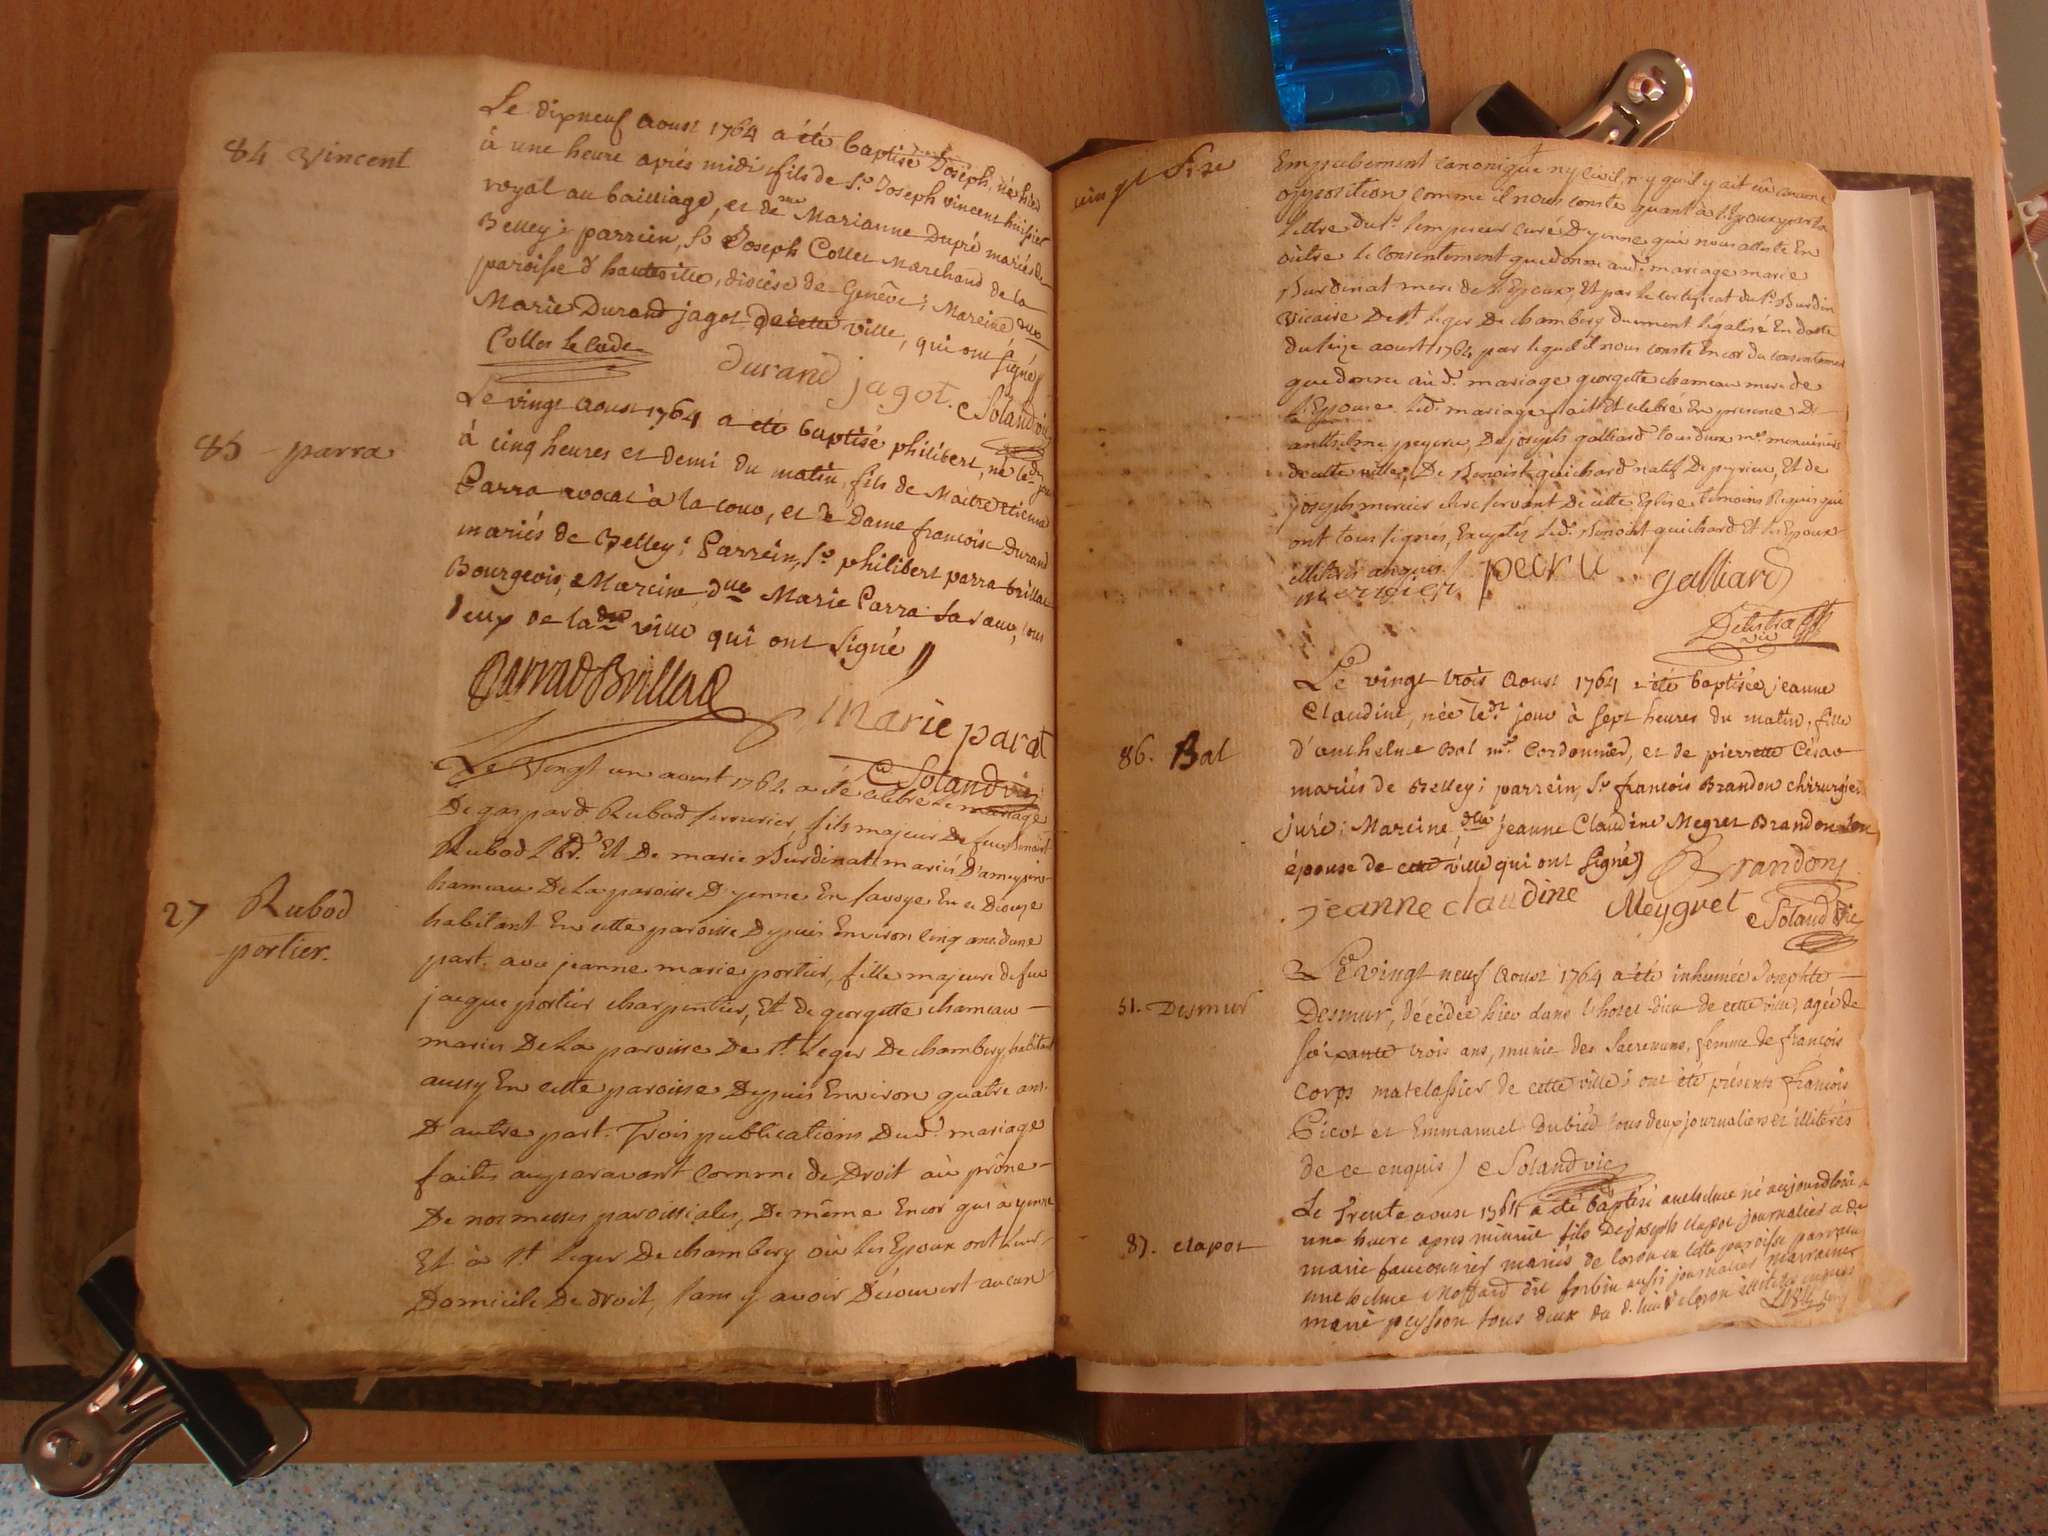 84 Vincent
Le dixneuf Aoust 1764 a été baptisé Joseph, né hier
à une heure aprés midi fils de Sr. Joseph vincent huissier
royal au bailliage, et de Marianne Dupré mariés de
Belley; parrein, Sr. Joseph Collet Marchand de la
paroisse d'hauteville, diocèse de Genêve; Mareine dlle
Marie Durand jagot de cette ville, qui ont signé
Collet Le Cade
durand jagot. Soland vic
85 parra
Le vingt Aoust 1764 a été baptisé philibert, né led. jour
à cinq heures et demi du matin, fils de Maitre etienne
Parra avocat à la cour, et de Dame francoise Durand
mariés de Belley; Parrein, Sr. philibert parra brillat
Bourgeois, Mareine, dlle Marie Parra, tous
deux de ladte ville qui ont signé
Parrad Brillad
Marie parat
Soland vic
27 Rubod
portier.
Le vingt un aoust 1764 a été célébré le mariage
De gaspard Rubod serrurier, fils majeur De feu Benoist
Rubod Et De marie Burdinat mariés D'ameysin
hameau De La paroisse D'yenne En savoye En ce Diocese
habitant En cette paroisse Depuis Environ cinq ans d'une
part, avec jeanne marie portier, fille majeure de feu
jacque portier charpentier, Et de georgette chameau
mariés De La paroisse De St. Leger De chambery, habitant
aussy En cette paroisse Depuis Environ quatre ans
D'autre part. Trois publications Dud. mariage
faites auparavant comme de Droit au prône
De nos messes paroissiales, De même Encor qu'à yenne
Et à St. Leger De chambery où les Epoux ont leur
Domicile De droit, sans y avoir Découvert aucun
vingt Size
Empechement canonique ny civil, ny qu'il y ait eû aucune
opposition comme il nous conste quant à l'Epoux par la
lettre du Sr. Lempereur curé D'yenne qui nous atteste En
outre le consentement que donne aud. mariage marie
Burdinat mere de l'Epoux, Et par le certificat du Sr. Burdin
vicaire De St. Leger De chambery duement légalisé En datte
du seize aoust 1764 par lequel il nous conste Encor du consentement
que donne aud. mariage georgette chameau mere de
l'Epouse. Led. mariage fait Et célébré En presence De
anthelme peyeru, De joseph galliard tous deux me. menuisiers
de cette ville, De Benoist quichard natif De peyrieu, Et de
joseph mercier clerc servant De cette Eglise témoins Requis qui
ont tous signés, Exceptés led. Benoist quichard Et les Epoux
illitérés enquis.
mercier pecru galliard
Delestra
vic
86. Bal
Le vingt trois Aoust 1764 a été baptisée jeanne
Claudine, née led. jour à sept heures du matin, fille
d'anthelme Bal me. Cordonnier, et de pierrette César
mariés de Belley; parrein, Sr. francois Brandon chirurgien
juré; Mareine, dlle jeanne Claudine Megret Brandon son
épouse de cette ville qui ont signé
Brandon
jeanne claudine Meygret Soland vic
51. Desmur
Le vingt neuf Aoust 1764 a été inhumée Josephte
Desmur, décédée hier dans l'hotel-dieu de cette ville, agée de
soixante trois ans, munie des Sacremens, femme de francois
Corps matelassier de cette ville; ont été présents francois
Picot et Emmanuel Dubiéd tous deux journaliers et illiterés
de ce enquis Soland vic
87. clapot
Le Trente aoust 1764 a été baptisé anthelme né aujourdhui a
une heure apres minuit fils De joseph clapot journalier et de
marie fauconnier mariés de coron en cette paroisse parrein
anthelme Moffard dit forbin aussi journalier marraine
marie peysson tous deux du d. lieu de coron illiterés enquis